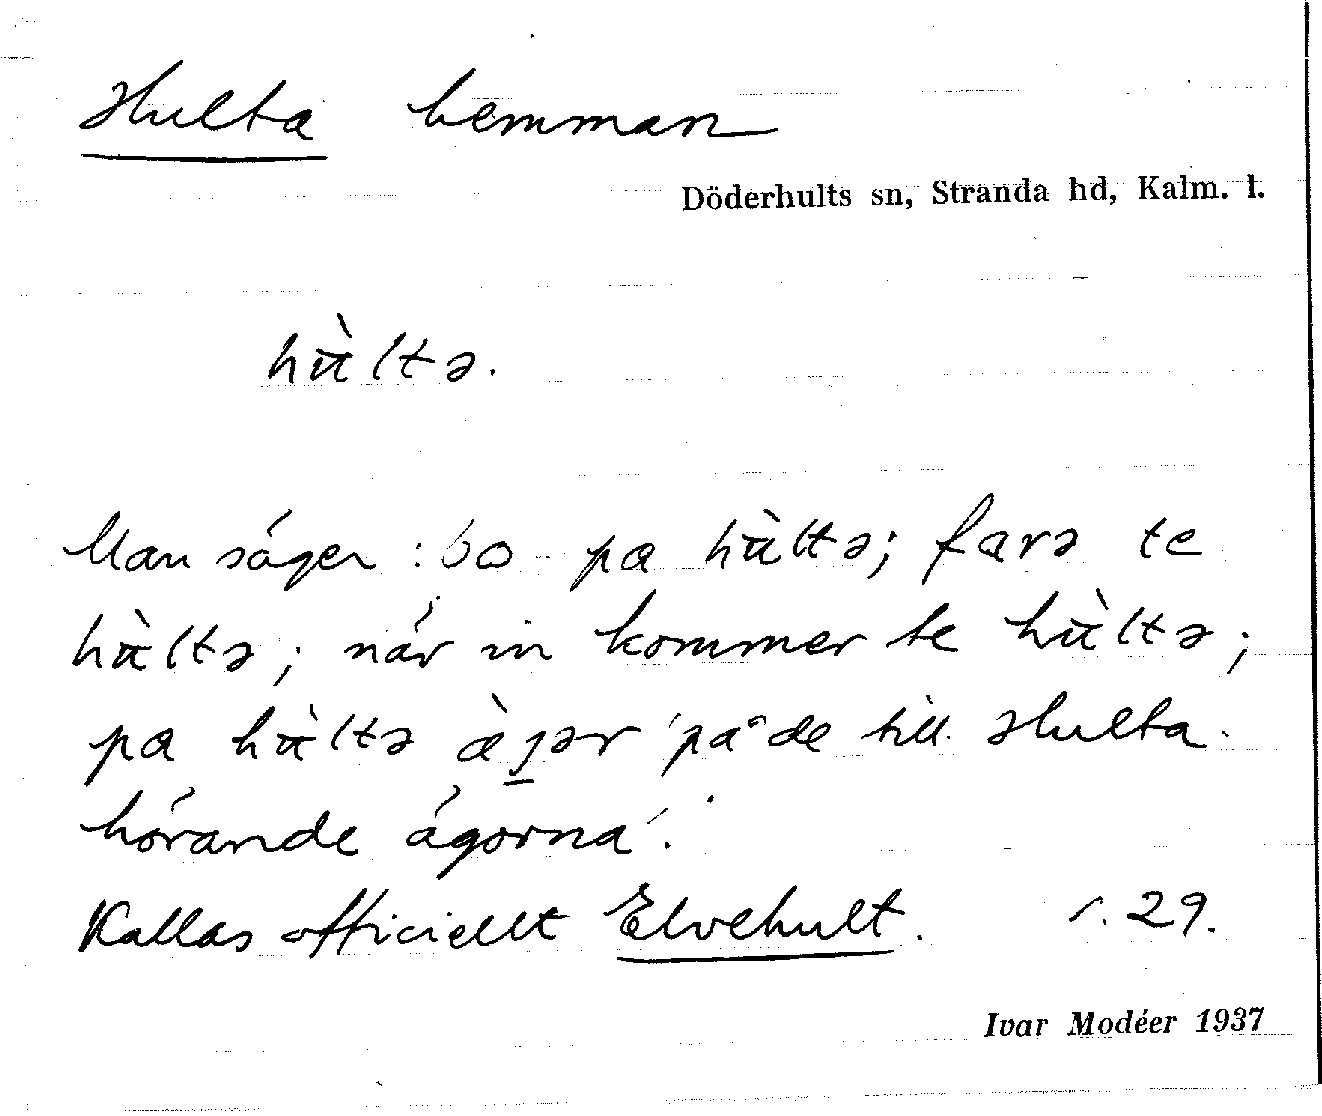 Hulta hemman
Döderhults sn, Stranda hd, Kalm. l.
hùltə.
Man säger: bo pa hùltə; fara te
hùltə; när in kommer te hùltə;
pa hùltə àɟər 'på de till Hulta
hörande ägorna'.
Kallas officiellt Elvehult. r. 29.
Ivar Modéer 1937